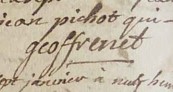 jean pichot qui-
geoffrenet
janvier à nuf heu